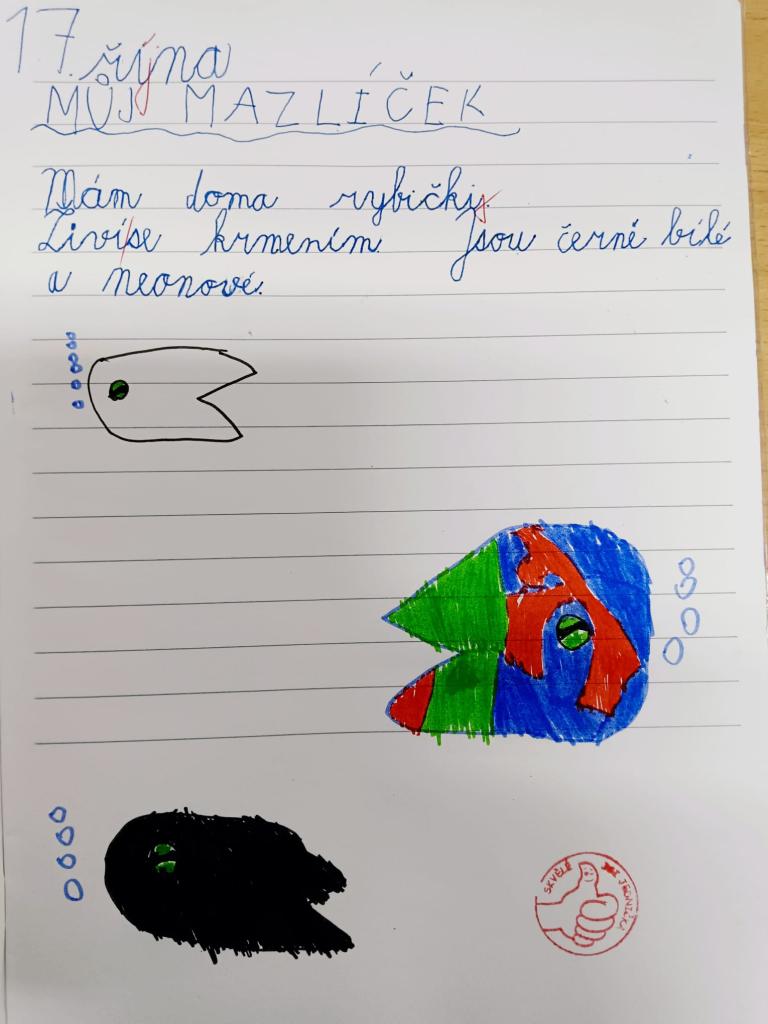 17. října
MŮJ MAZLÍČEK
Mám doma rybičky.
Živí se krmením. Jsou černé bílé
a neonové.
SKVĚLÉ JEDNIČKA